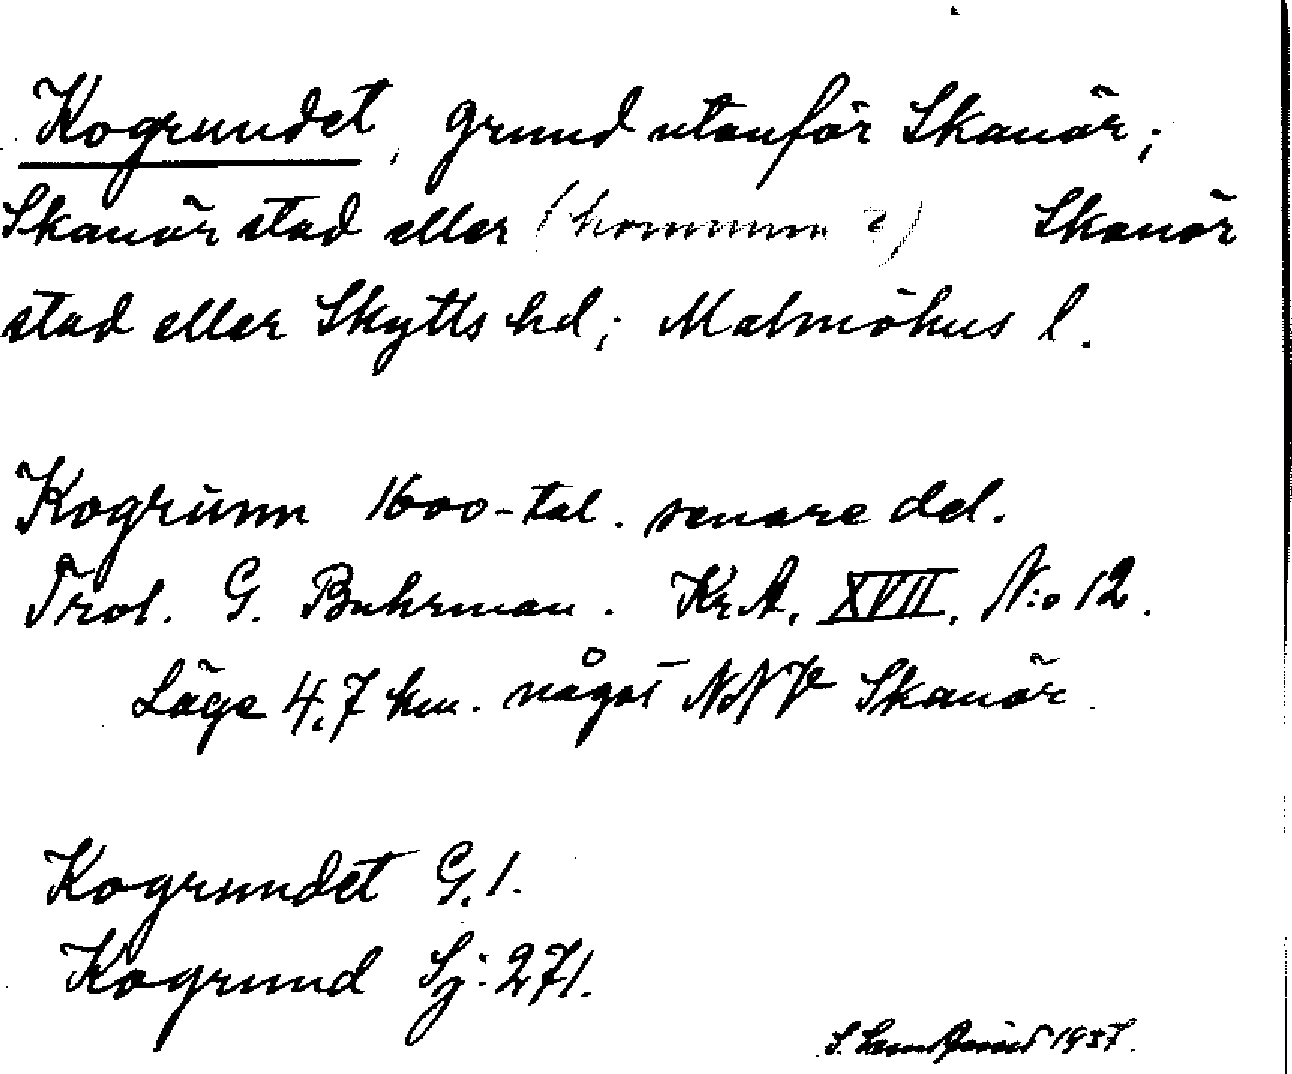 Kogrundet, grund utanför Skanör;
Skanör stad eller (kommun?) Skanör
stad eller Skytts hd; Malmöhus l.
Kogrünn 1600-tal. senare del.
Trol. G. Buhrman. KrA. XVII. N:o 12.
Läge 4,7 km. något NNV Skanör.
Kogrundet G.1.
Kogrund Sj: 271.
S. 1937.